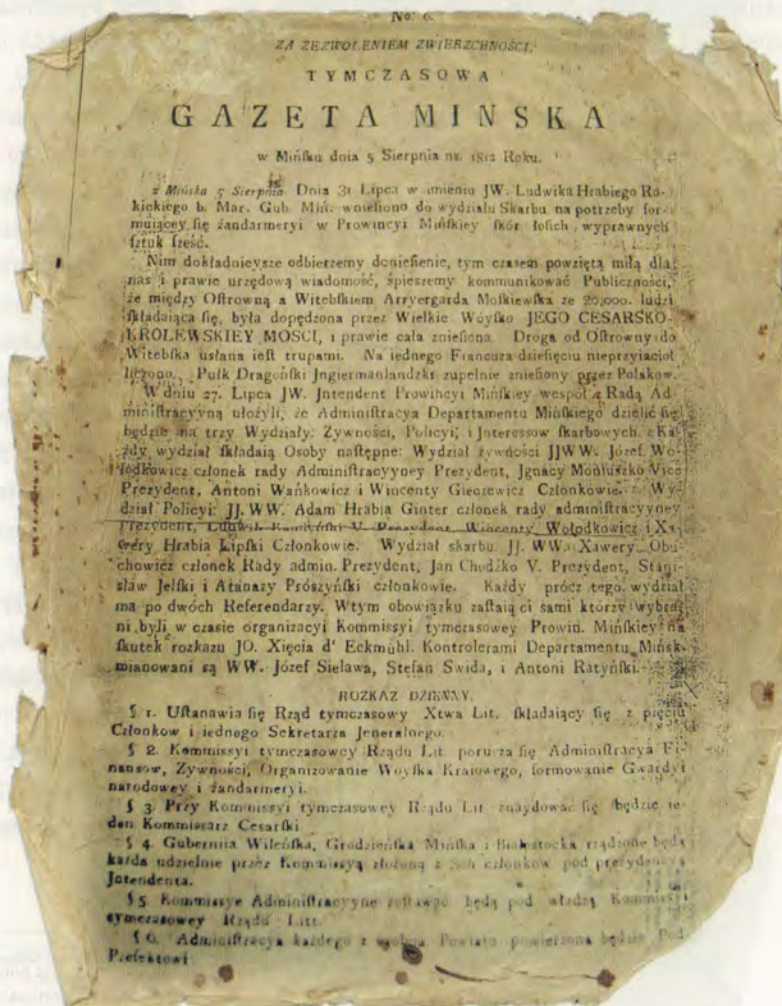 No. 6.
ZA ZEZWOLENIEM ZWIERZCHNOŚCI.
TYMCZASOWA
GAZETA MINSKA
w Mińſku dnia 5 Sierpnia ns. 1812 Roku.
z Mińſka 5 Sierpnia Dnia 31 Lipca w imieniu JW. Ludwika Hrabiego Ro-
kickiego b. Mar. Gub. Miń. wnieſiono do wydziału Skarbu na potrzeby for-
muiącey ſię żandarmeryi w Prowincyi Mińſkiey ſkór łoſich wyprawnych
ſztuk ſześć.
Nim dokładnieysze odbierzemy donieſienie, tym czasem powziętą miłą dla
nas i prawie urzędową wiadomość, śpieszemy kommunikować Publiczności,
że między Oſtrowną a Witebſkiem Arryergarda Moſkiewſka ze 20,000. ludzi
ſkładaiąca ſię, była dopędzona przez Wielkie Woyſko JEGO CESARSKO-
KROLEWSKIEY MOSCI, i prawie cała znieſiona. Droga od Oſtrowny do
Witebſka usłana ieſt trupami. Na iednego Francuza dzieſięciu nieprzyiacioł
liczono. Pułk Dragońſki Jngiermanlandzki zupełnie znieſiony przez Polakow.
W dniu 27. Lipca JW. Jntendent Prowincyi Mińſkiey weſpół z Radą Ad-
miniſtracyyną ułożyli, że Adminiſtracya Departamentu Mińſkiego dzielić ſię
będzie na trzy Wydziały: Zywności, Policyi, i Jnteressow ſkarbowych. Ka-
żdy wydział ſkładaią Osoby naſtępne: Wydział żywności JJWW. Józef Wo-
łodkowicz członek rady Adminiſtracyyney Prezydent, Jgnacy Moniuszko Vice
Prezydent, Antoni Wańkowicz i Wincenty Gieczewicz Członkowie. Wy-
dział Policyi: JJ. WW. Adam Hrabia Ginter członek rady adminiſtracyyney
Prezydent, Ludwik Kamińſki V. Prezydent Wincenty Wołodkowicz i Xa-
wery Hrabia Lipſki Członkowie. Wydział skarbu JJ. WW. Xawery Obu-
chowicz członek Rady admin. Prezydent, Jan Chodźko V. Prezydent, Stani-
sław Jelſki i Atanazy Prószyńſki członkowie. Każdy prócz tego wydział
ma po dwóch Referendarzy. Wtym obowiązku zaſtaią ci sami którzy wybra-
ni byli w czasie organizacyi Kommissyi tymczasowey Prowin. Mińſkiey na
ſkutek rozkazu JO. Xięcia d' Eckmühl. Kontrolerami Departamentu Mińsk.
mianowani są WW. Józef Sielawa, Stefan Swida, i Antoni Ratyńſki.
ROZKAZ DZIENNY.
§ 1. Uſtanawia ſię Rząd tymczasowy Xtwa Lit. ſkładaiący ſię z pięciu
Członkow i iednego Sekretarza Jeneralnego.
§ 2. Kommissyi tymczasowey Rządu Lit. porucza ſię Adminiſtracya Fi-
nansow, Zywności, Organizowanie Woyſka Kraiowego, formowanie Gwardyi
narodowey i żandarmeryi.
§ 3. Przy Kommissyi tymczasowey Rządu Lit. znaydować ſię będzie ie-
den Kommissarz Cesarſki
§ 4. Gubernia Wileńſka, Grodzieńſka Mińſka i Białostocka rządzone będą
każda udzielnie przez Kommissyą złożoną z członkow pod prezydencyą
Jntendenta.
§ 5. Kommissye Adminiſtracyyne zoſtawać będą pod władzą Kommissyi
tymczasowey Rządu Litt.
§ 6. Adminiſtracya każdego z osobna Powiatu powierzona będzie Pod-
Prefektowi